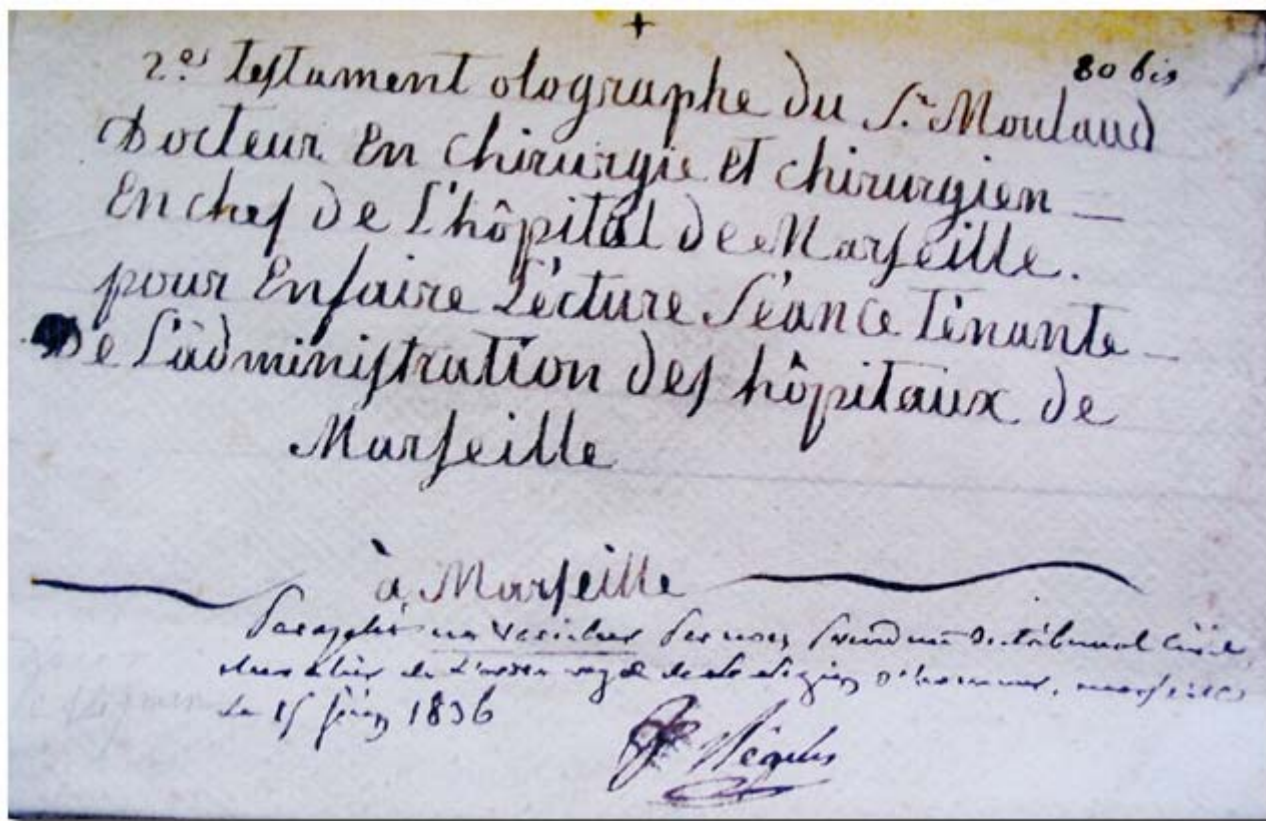 +
80 bis
2.e testament olographe du S.r Moulaud
Docteur En chirurgie et chirurgien —
En chef de L'hôpital de Marseille.
pour Enfaire Lécture Séance Ténante —
De L'administration des hôpitaux de
Marseille
à Marseille
Paraphé ne varietur par nous, président du tribunal Civil,
chevalier de l'ordre royal de la Légion d'honneur, marseille
Le 15 1836